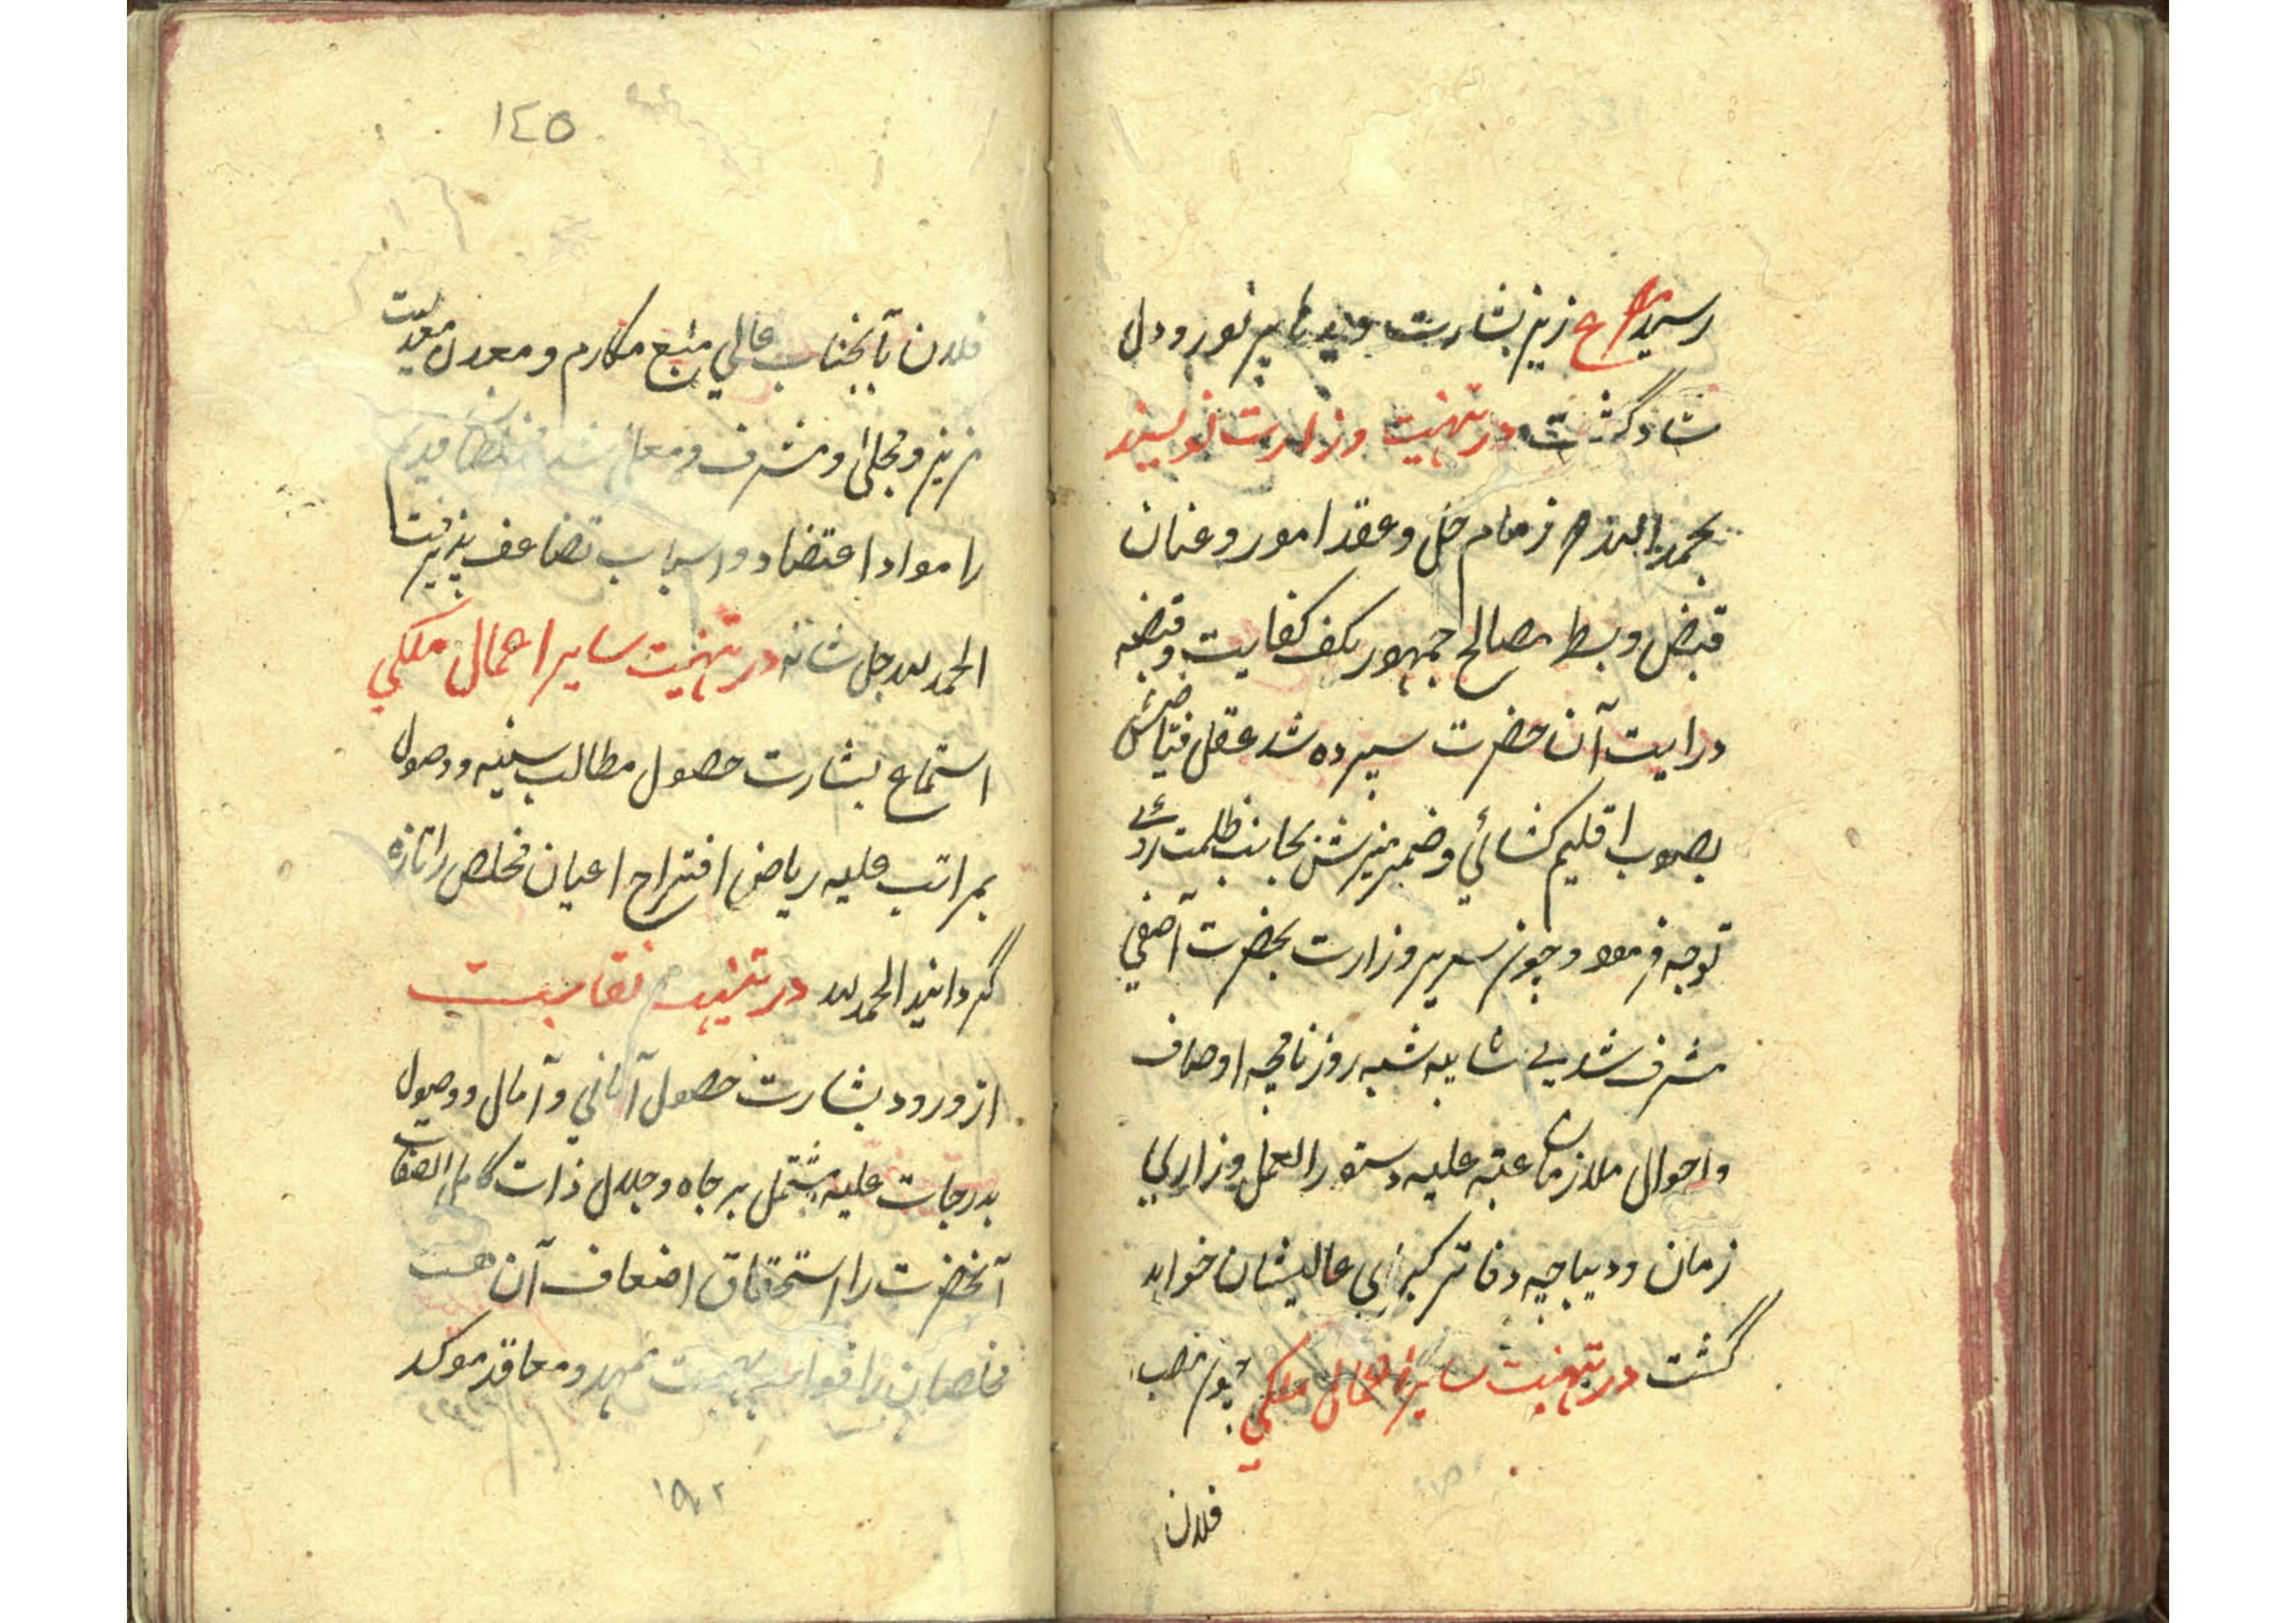 رسید ع زین بشارت دیده پر نور و دل
شاد گشت در تهنیت وزارت نویسند
بحمد الله زمام حل و عقد امور و عنان
قبض و بسط مصالح جمهور بکف کفایت و قبضه
درایت آن حضرت سپرده شد عقل فیاضش
بصوب اقلیم کشائی و ضمیر منیرش بجانب ظلمت زدائے
توجه فرمود و چون سریر وزارت بحضرت آصفی
مشرف شد بی شایبه شبه روزنامچه اوصاف
و احوال ملازمان عتبه علیه دستور العمل وزارای
زمان و دیباچه دفاتر کبرای عالیشان خواهد
گشت در تهنیت سایر اعمال ملکی چون منصب
فلان
١٤٥
فلان بآنجناب عالی منبع مکارم و معدل معدلت
مزین و مجلی و مشرف و معلی شد مخلصان قدیم
را مواد اعتضاد و اسباب تضاعف پذیرفت
الحمد لله جل شانه در تهنیت سایر اعمال ملکی
استماع بشارت حصول مطالب سنیه و وصول
بمراتب علیه ریاض افتراح اعیان مخلص را تازه
گردانید الحمد لله در تهنیت نقابت
از ورود بشارت حصول آمانی و آمال و وصول
بدرجات علیه مشتمل بر جاه و جلال ذات کامل الصفات
آنحضرت را استحقاق اضعاف آن هست
مخلصان را قواعد بهجت ممهد و معاقد موکد